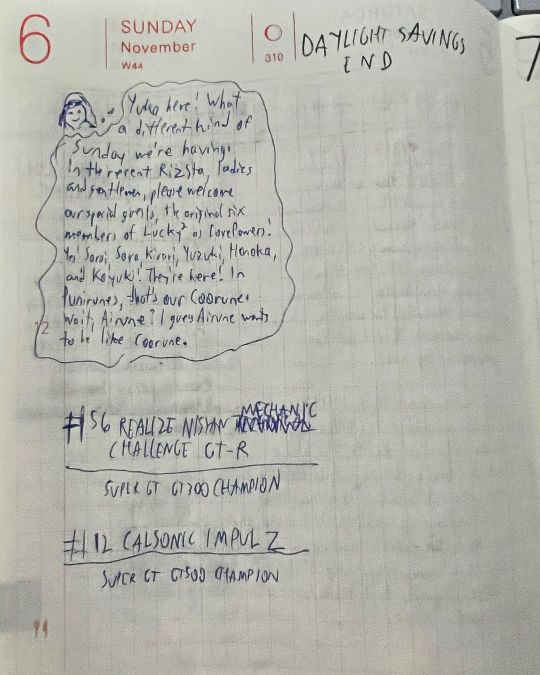 6
SUNDAY
November
W44
310
DAYLIGHT SAVINGS
END
7
Yuka here! What
a different kind of
Sunday we're having.
In the recent RizSta, ladies
and gentlemen, please welcome
our special guests, the original six
members of Lucky² as CorePowers!
Yui Sora, Kirari, Yuzuki, Honoka,
and Koyuki! They're here! In
Punirunes, that's our Coorune.
Wait, Airune? I guess Airune wants
to be like Coorune.
12
#56 REALIZE NISSAN MECHANIC
CHALLENGE GT-R
SUPER GT GT300 CHAMPION
#12 CALSONIC IMPUL Z
SUPER GT GT500 CHAMPION